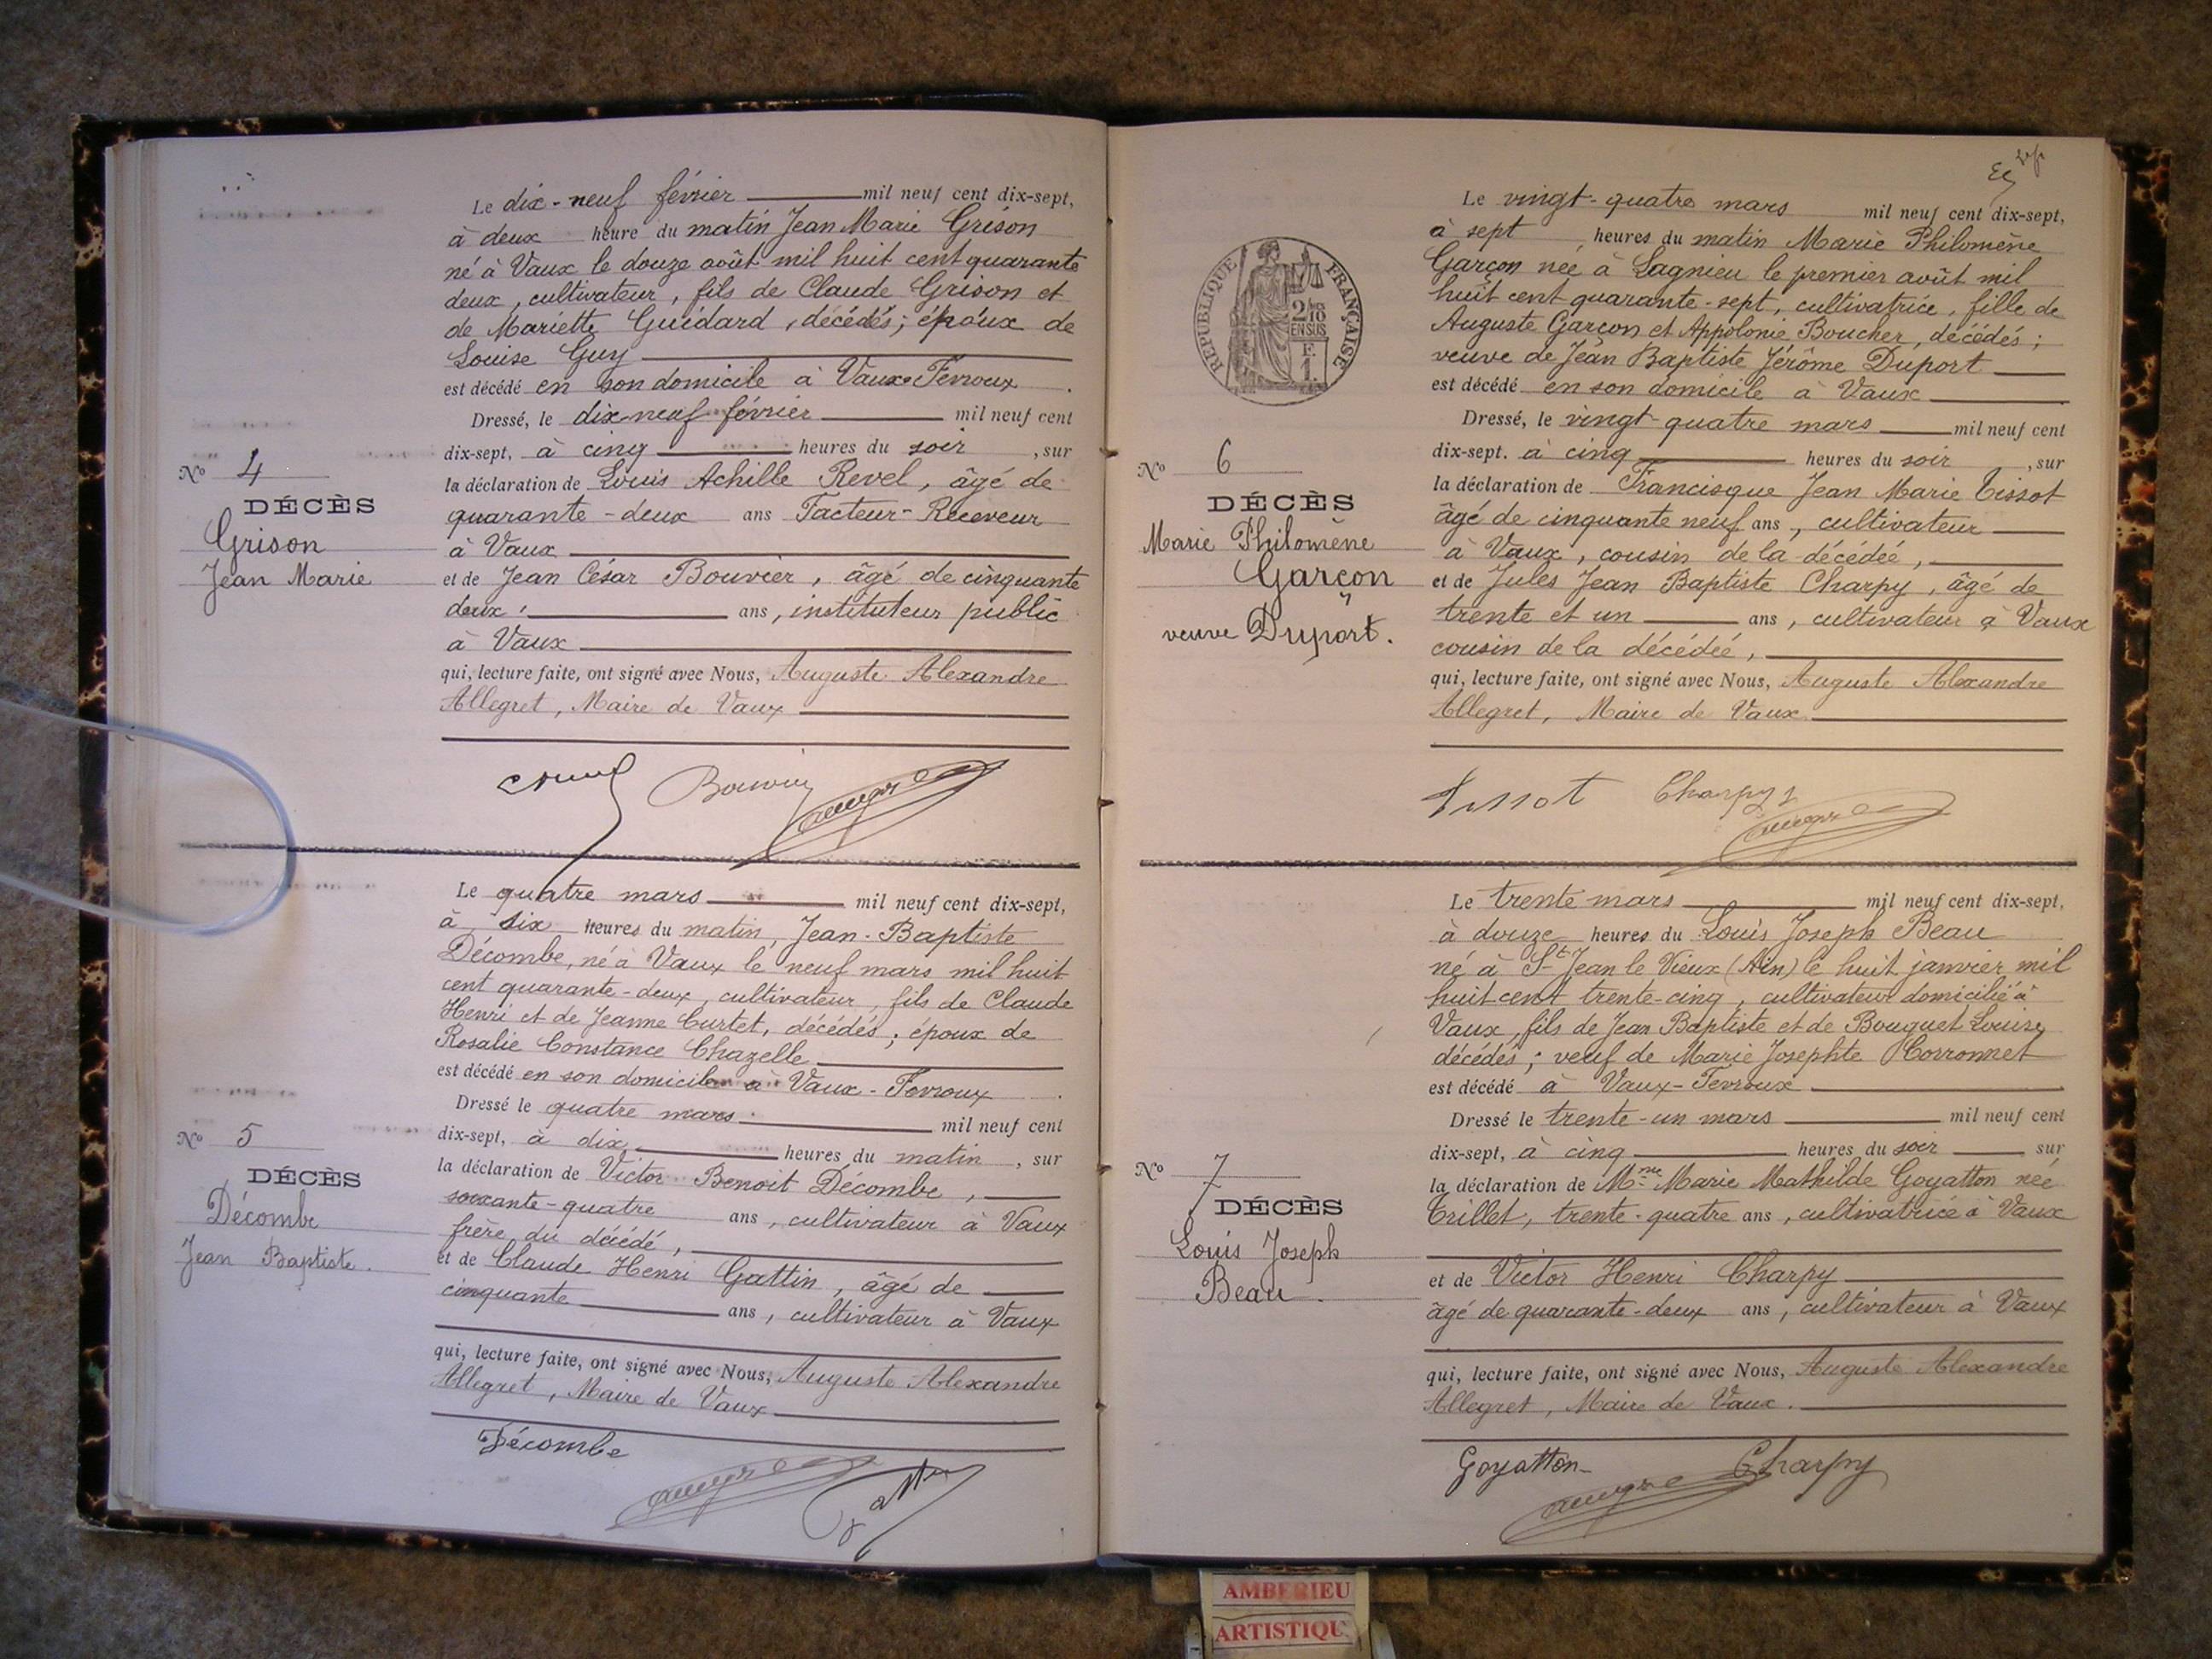 Le dix-neuf février mil neuf cent dix-sept,
à deux heure du matin Jean Marie Grison
né à Vaux le douze août mil huit cent quarante
deux, cultivateur, fils de Claude Grison et
de Mariette Guidard, décédés; époux de
Louise Guy
est décédé en son domicile à Vaux-Fevroux.
Dressé, le dix-neuf février mil neuf cent
dix-sept, à cinq heures du soir, sur
la déclaration de Louis Achille Revel, âgé de
quarante-deux ans Facteur-Receveur
à Vaux
et de Jean César Bouvier, âgé de cinquante
deux ans, instituteur public
à Vaux
qui, lecture faite, ont signé avec Nous, Auguste Alexandre
Allegret, Maire de Vaux
No 4
DÉCÈS
Grison
Jean Marie
Bouvier
Le quatre mars mil neuf cent dix-sept,
à six heures du matin, Jean-Baptiste
Décombe, né à Vaux le neuf mars mil huit
cent quarante-deux, cultivateur, fils de Claude
Henri et de Jeanne Curtet, décédés; époux de
Rosalie Constance Chazelle
est décédé en son domicile à Vaux-Fevroux.
Dressé le quatre mars mil neuf cent
dix-sept, à dix heures du matin, sur
la déclaration de Victor Benoit Décombe,
soixante-quatre ans, cultivateur à Vaux
frère du décédé,
et de Claude Henri Gattin, âgé de
cinquante ans, cultivateur à Vaux
qui, lecture faite, ont signé avec Nous, Auguste Alexandre
Allegret, Maire de Vaux
No 5
DÉCÈS
Décombe
Jean Baptiste.
Décombe
Gattin
RÉPUBLIQUE FRANÇAISE
2/10
EN SUS
F.
1.
Le vingt-quatre mars mil neuf cent dix-sept,
à sept heures du matin Marie Philomène
Garçon née à Lagnieu le premier août mil
huit cent quarante-sept, cultivatrice, fille de
Auguste Garçon et Appolonie Boucher, décédés;
veuve de Jean Baptiste Jérôme Duport
est décédé en son domicile à Vaux
Dressé, le vingt-quatre mars mil neuf cent
dix-sept. à cinq heures du soir, sur
la déclaration de Francisque Jean Marie Tissot
âgé de cinquante neuf ans, cultivateur
à Vaux, cousin de la décédée,
et de Jules Jean Baptiste Charpy, âgé de
trente et un ans, cultivateur à Vaux
cousin de la décédée,
qui, lecture faite, ont signé avec Nous, Auguste Alexandre
Allegret, Maire de Vaux.
No 6
DÉCÈS
Marie Philomène
Garçon
veuve Duport.
Tissot Charpy
Le trente mars mil neuf cent dix-sept,
à douze heures du Louis Joseph Beau
né à St Jean le Vieux (Ain) le huit janvier mil
huit cent trente-cinq, cultivateur domicilié à
Vaux, fils de Jean Baptiste et de Bouguet Louise,
décédés; veuf de Marie Josephte Corronnet
est décédé à Vaux-Fevroux
Dressé le trente-un mars mil neuf cent
dix-sept, à cinq heures du soir sur
la déclaration de Mme Marie Mathilde Goyatton née
Trillet, trente-quatre ans, cultivatrice à Vaux
et de Victor Henri Charpy
âgé de quarante-deux ans, cultivateur à Vaux
qui, lecture faite, ont signé avec Nous, Auguste Alexandre
Allegret, Maire de Vaux.
No 7
DÉCÈS
Louis Joseph
Beau.
Goyatton Charpy
AMBERIEU
ARTISTIQU